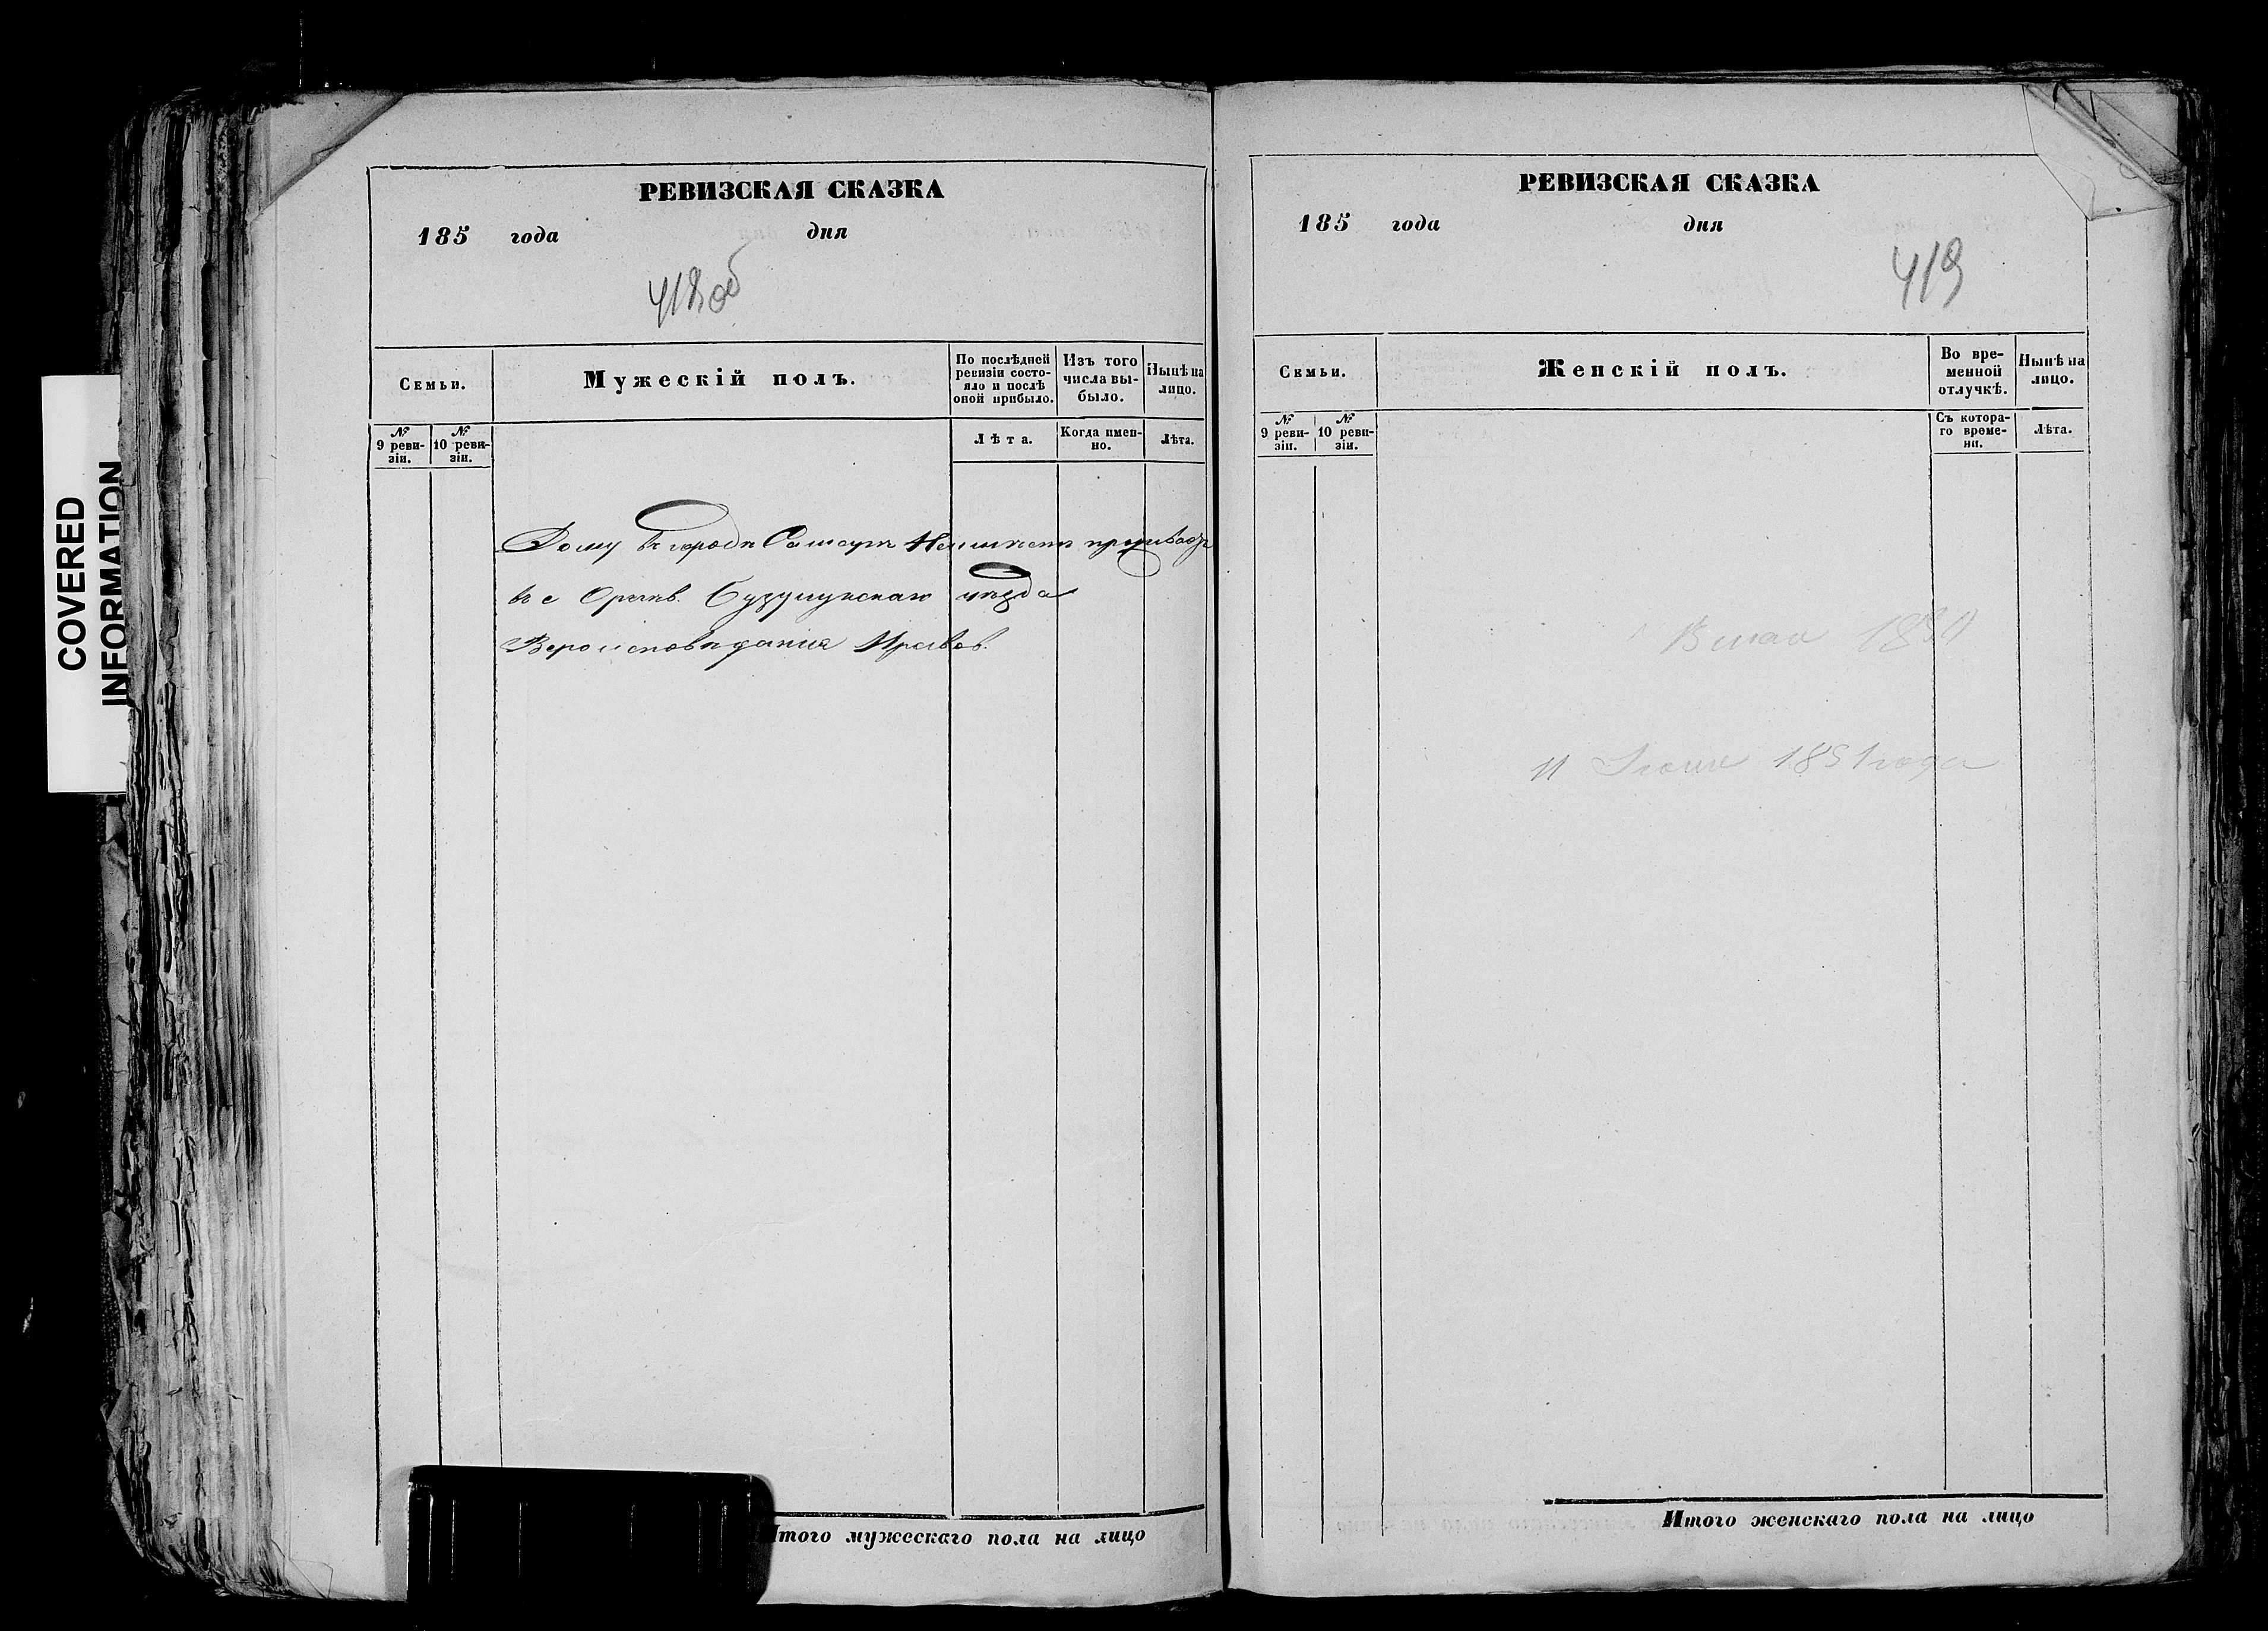 COVERED
INFORMATION
РЕВИЗСКАЯ СКАЗКА
185 года дня
418 об
Семьи.
Мужескій полъ.
По послѣдней
ревизіи состо-
яло и послѣ
оной прибыло.
Изъ того
числа вы-
было.
Нынѣ на
лицо.
№ 9 реви-
зіи.
№ 10 реви-
зіи.
Лѣта.
Когда имен-
но.
Лѣта.
Дому въ городѣ Самарѣ Неимѣетъ
въ с Бузулукскаго уѣзда
Вероисповѣданія Правов.
Итого мужескаго пола на лицо
РЕВИЗСКАЯ СКАЗКА
185 года дня
419
Семьи.
Женскій полъ.
Во вре-
менной
отлучкѣ.
Нынѣ на
лицо.
№ 9 реви-
зіи.
№ 10 реви-
зіи.
Съ котора-
го време-
ни.
Лѣта.
мая
11 1851 года
Итого женскаго пола на лицо